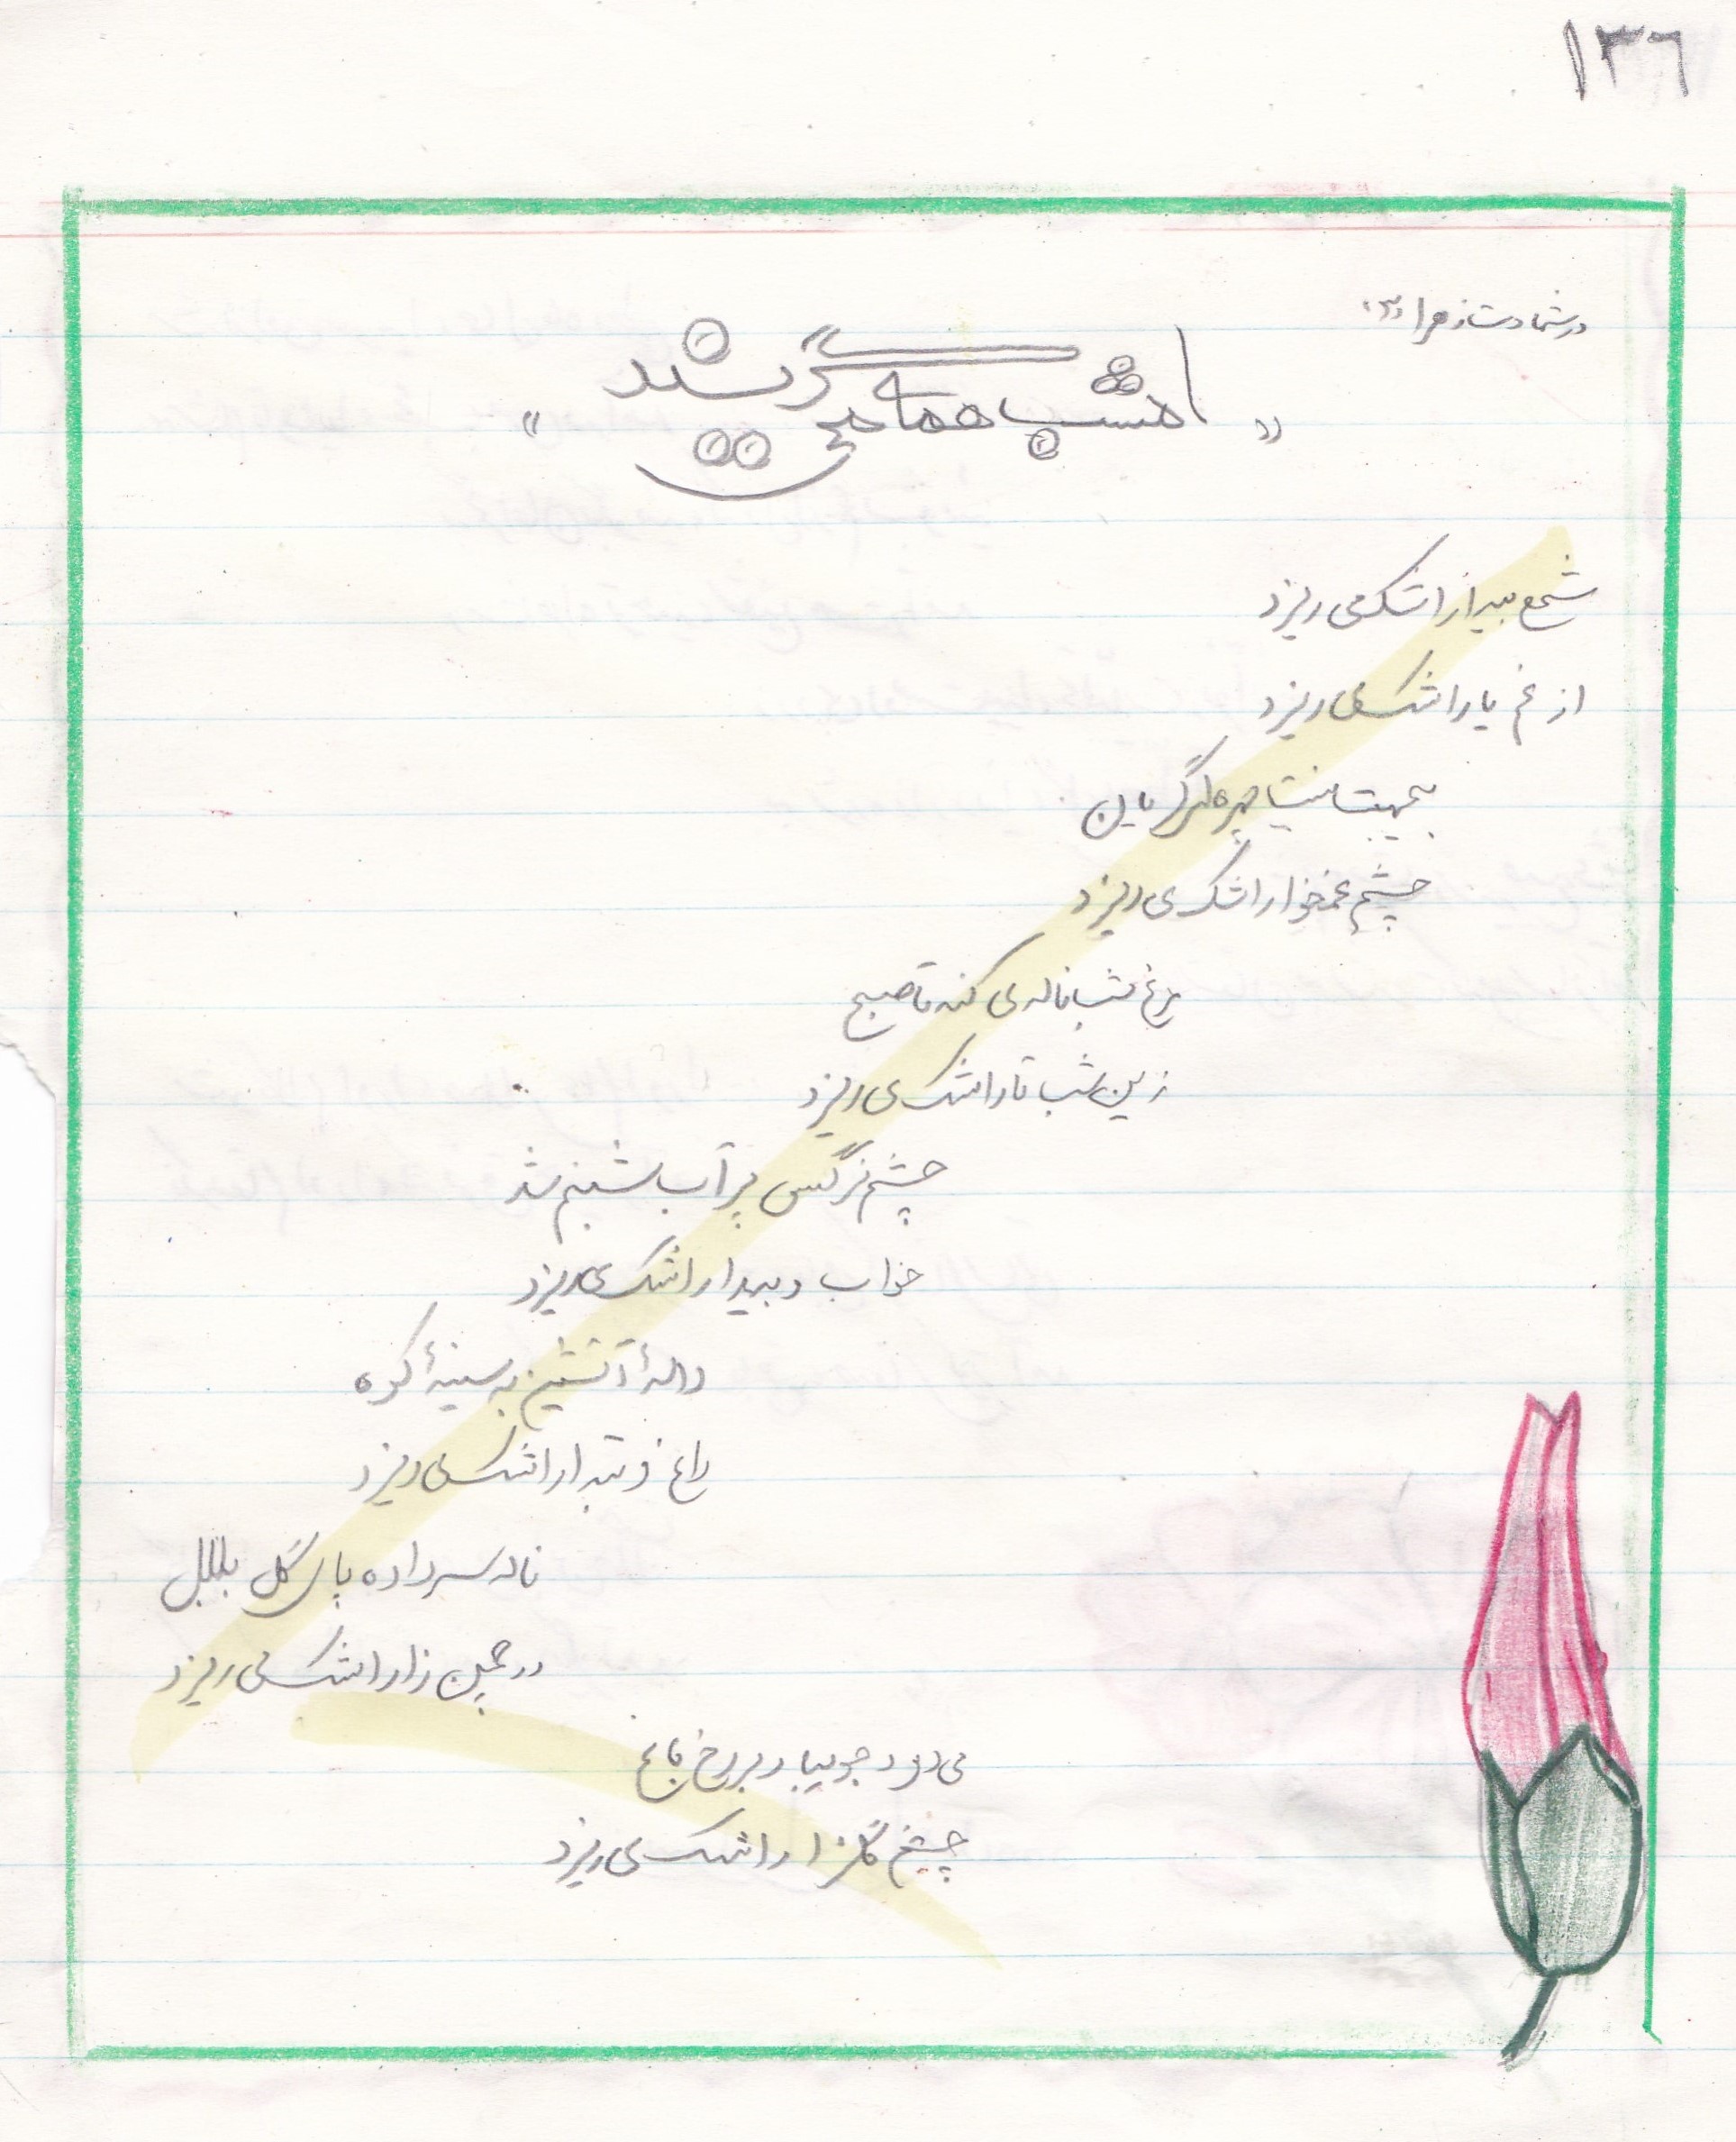 ۱۳۶
در شهادت زهرا (س)
« امشب همه می گریند »
شمع بیدار اشک می ریزد
از غم یار اشک می ریزد
بی جهت نیست چهره ام گریان
چشم غمخوار اشک می ریزد
مرغ شب ناله می کند تا صبح
زین شب تار اشک می ریزد
چشم نرگس پر آب شبنم شد
خواب و بیدار اشک می ریزد
لالهٔ آتشین به سینهٔ کوه
داغ و تبدار اشک می ریزد
ناله سر داده پای گل بلبل
در چمن زار اشک می ریزد
می دود جویبار بر رخ باغ
چشم گلزار اشک می ریزد